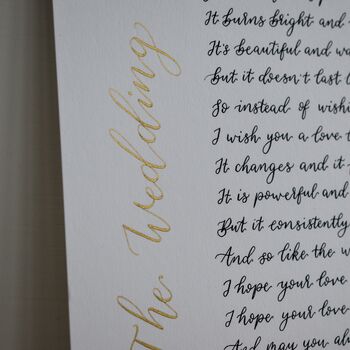 The Wedding
It burns bright and
It's beautiful and wa
But it doesn't last
So instead of wishi
I wish you a love t
It changes and it
It is powerful and
But it consistently
And so like the w
I hope your love
I hope your love
And may you al